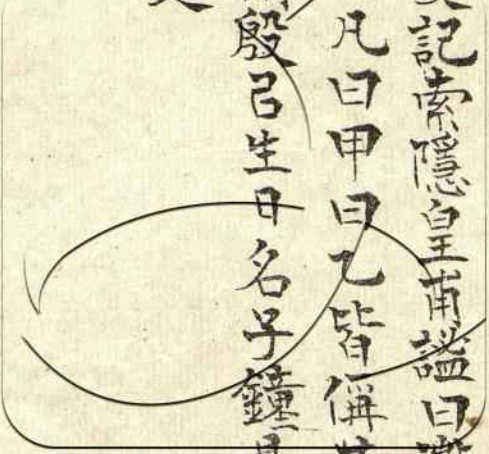 記索隱皇甫謐曰
凡曰甲曰乙皆偁
殷己生日名子鐘